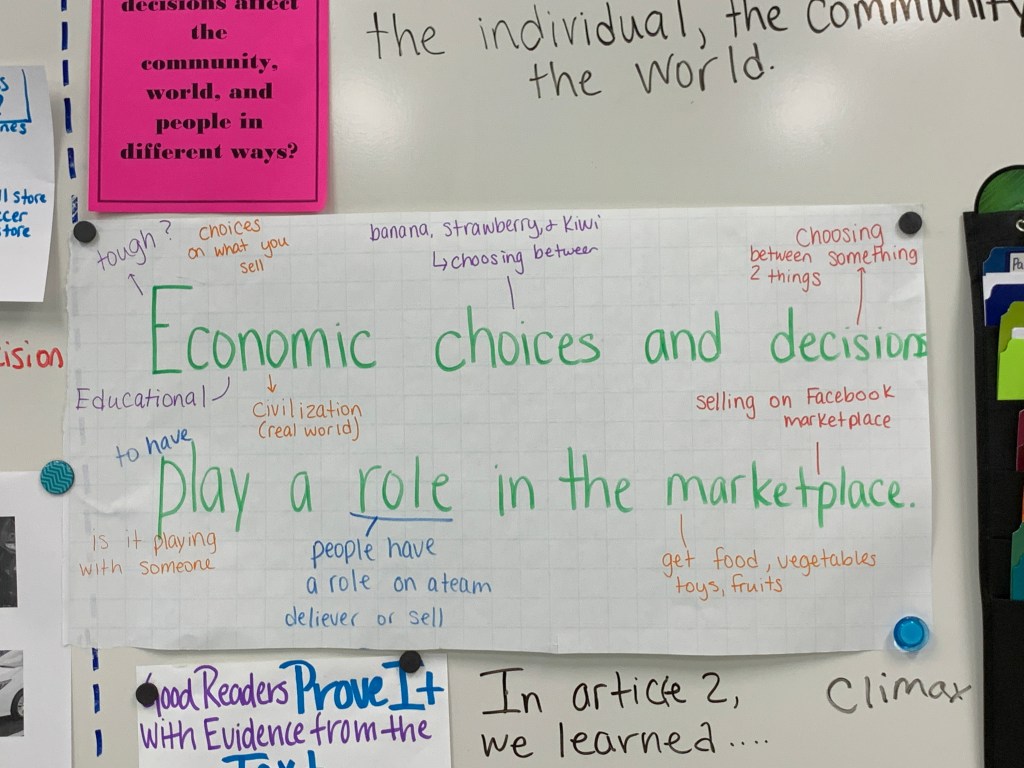 decisions affect
the
community,
world, and
people in
different ways?
the individual, the community
the world.
ll store
tore
ision
tough?
choices
on what you
sell
banana, strawberry, & Kiwi
↳choosing between
Choosing
between something
2 things
Economic choices and decisions
Educational
Civilization
(real world)
selling on Facebook
marketplace
to have
play a role in the marketplace.
is it playing
with someone
people have
a role on a team
deliever or sell
get food, vegetables
toys, fruits
Good Readers Prove It
with Evidence from the
Text
In article 2,
we learned....
Climax